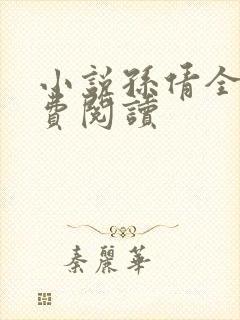 小說孫倩全
費閱讀
秦麗華